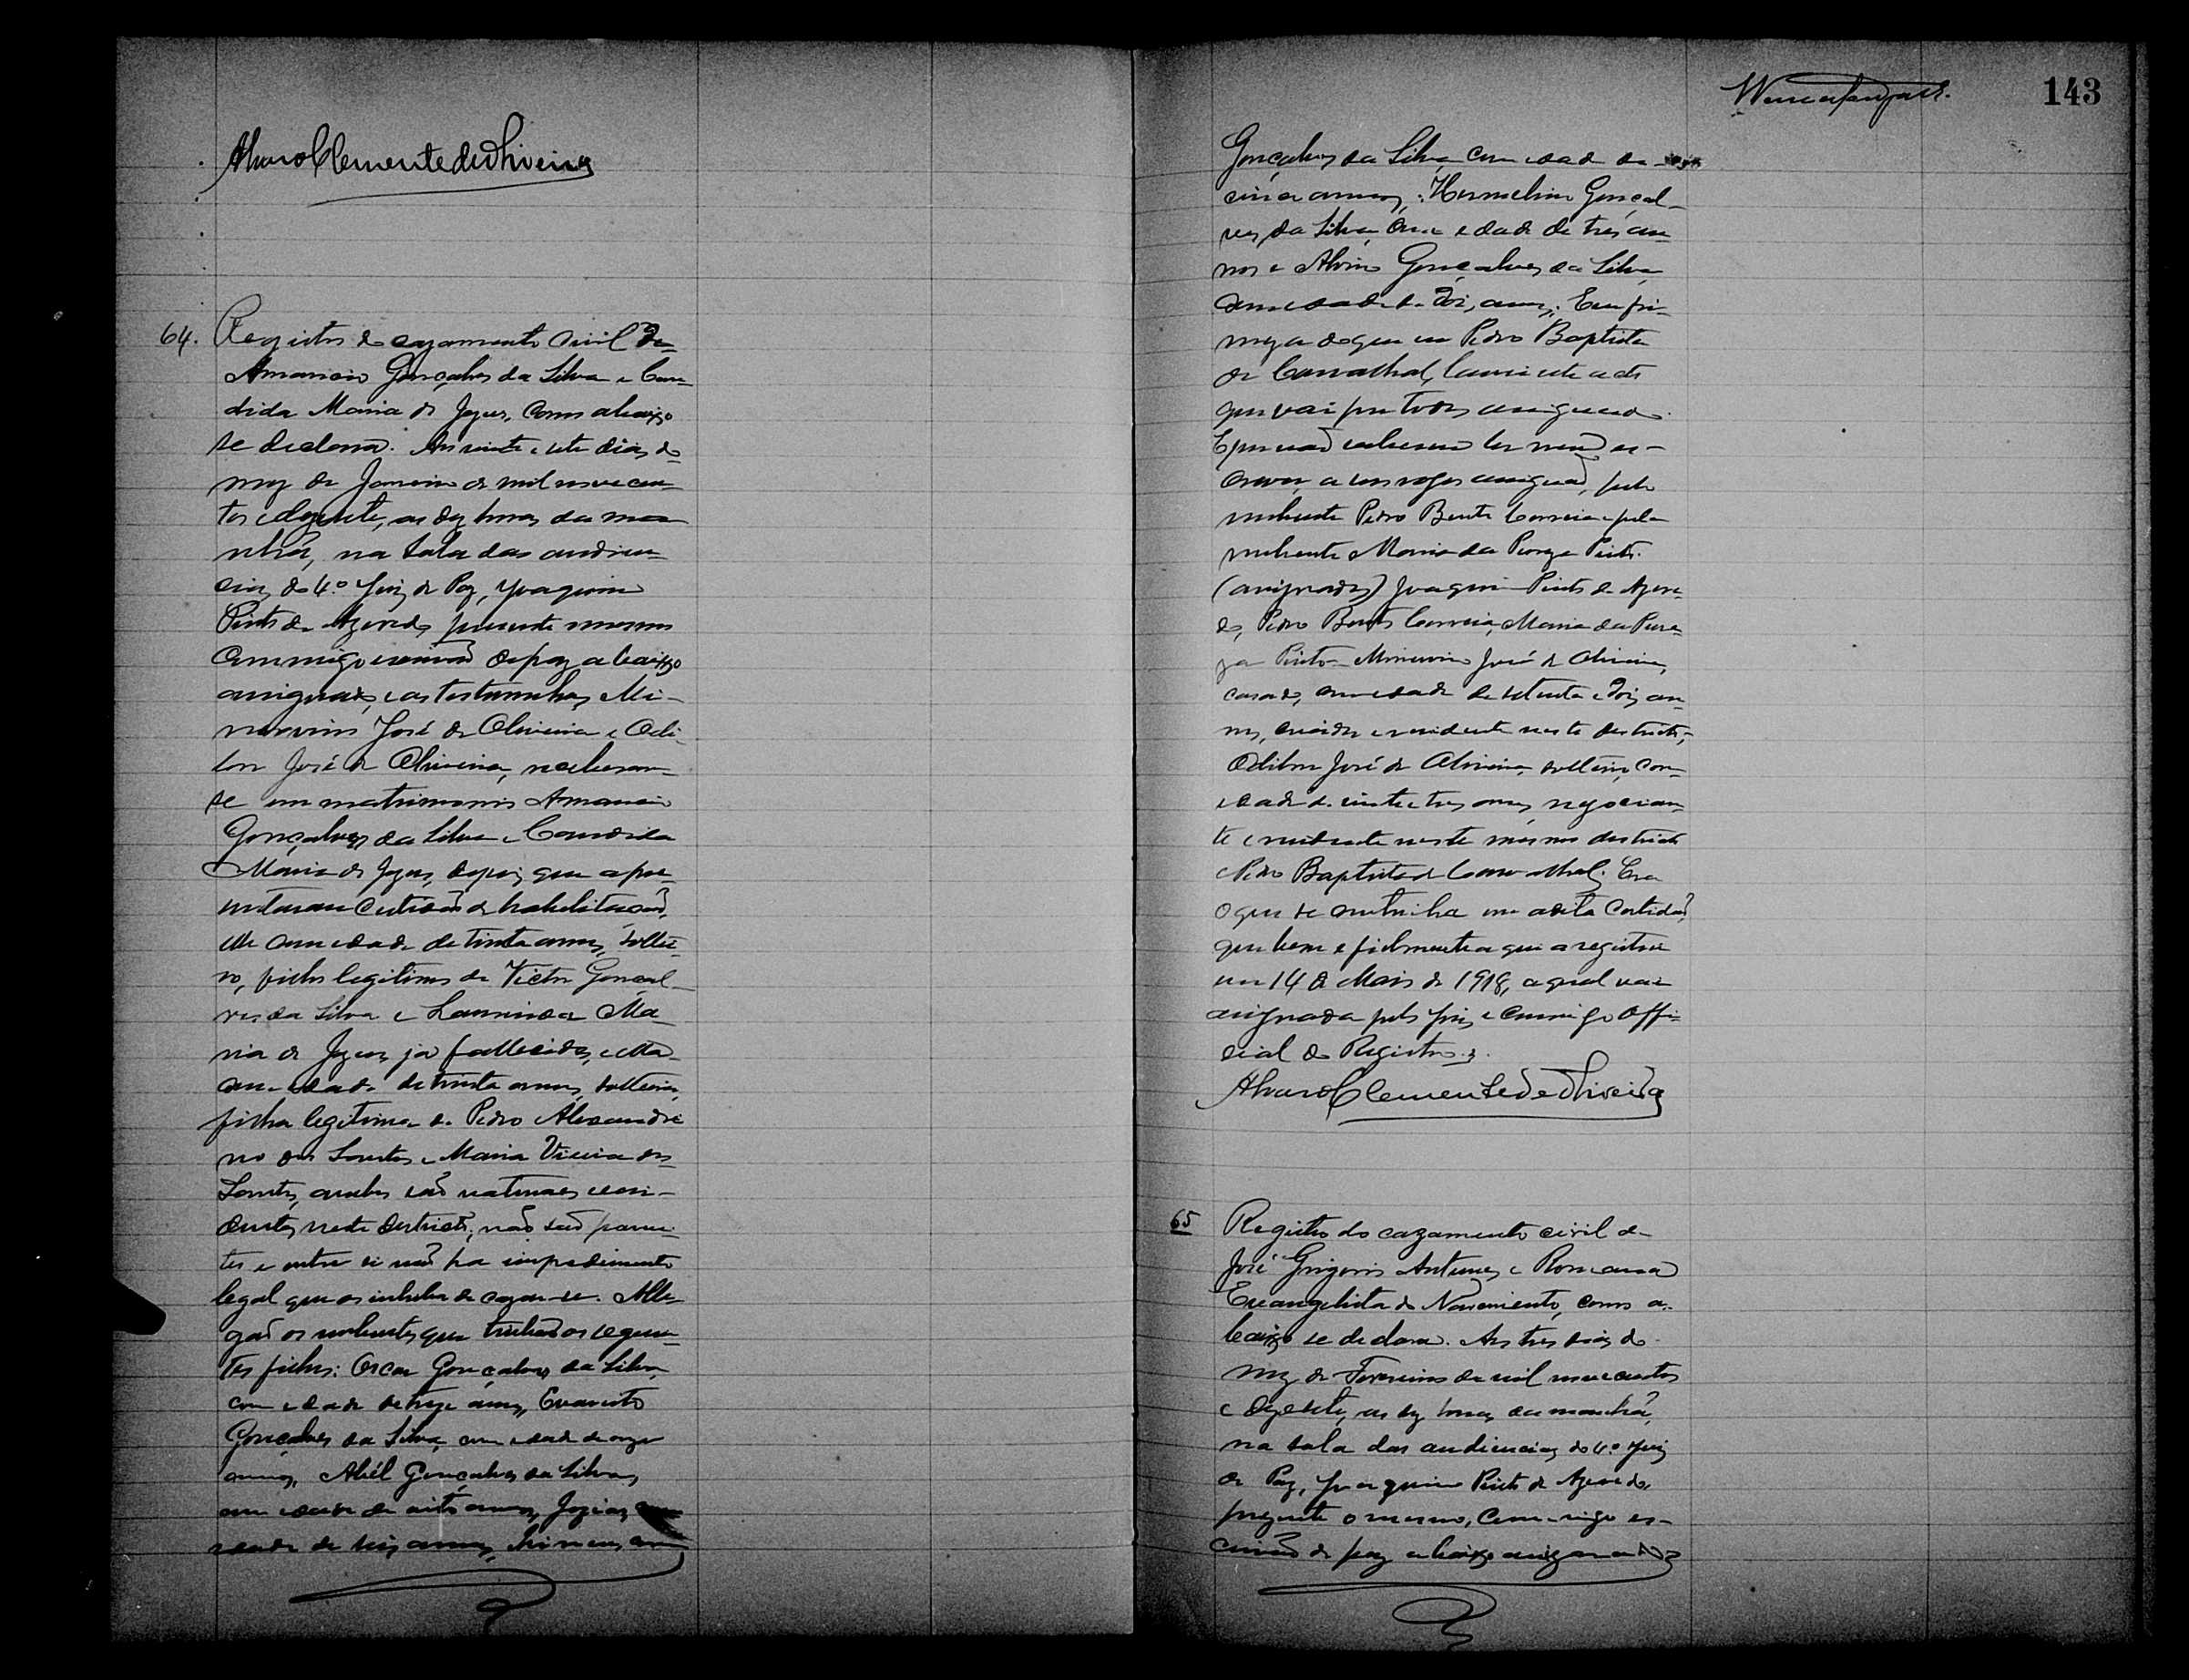 Alvaro Clemente de Oliveira
64. Registro do cazamento civil de
Amancio Gonçalves da Silva e Can
dida Maria de Jezus, como abaixo
se declara. Aos vinte e sete dias do
mez de Janeiro de mil novecen
tos e dezesete, as dez horas da ma
nhã, na sala das audien
cias do 4º Juiz de Paz, Joaquim
Pinto de Azevedo, presente o mesmo
commigo escrivão de paz abaixo
assignado, e as testemunhas Mi-
nervino José de Oliveira e Odi
lon José de Oliveira, receberam-
se em matrimonio Amancio
Gonçalves da Silva e Candida
Maria de Jezus, depois que apre
sentaram certidão de habilitação,
elle com edade de trinta annos, soltei
ro, filho legitimo de Victor Gonçal
ves da Silva e Laurinda Ma
ria de Jezus, já fallecidos, e ella
com edade de trinta annos, solteira,
filha legitima de Pedro Alexandri
no dos Santos e Maria Vieira dos
Santos, ambos são naturaes e resi-
dentes neste districto; não são paren
tes e entre si não ha impedimento
legal que os inhiba de cazar-se. Alle
gão os nubentes que tinhão os seguin
tes filhos: Oscar Gonçalves da Silva,
com edade de treze annos, Evaristo
Gonçalves da Silva, com edade de onze
annos, Abél Gonçalves da Silva,
com edade de oito annos, Jozias, com
edade de seis annos,
143
Gonçalves da Silva, com edade de
cinco annos, Hermelino Gonçal-
ves da Silva, com edade de tres an
nos e Alvino Gonçalves da Silva,
com edade de dois annos. Em fir
meza do que eu Pedro Baptista
de Carvalhal, lavrei este acto
que vai por todos assignado.
E por não saberem ler nem es-
crever, a seus rogos assignão, pelo
nubente Pedro Bento Correia e pela
nubente Maria da Pureza Pinto.
(assignados) Joaquim Pinto de Azeve
do, Pedro Bento Correia, Maria da Pure
za Pinto - Minervino José de Oliveira,
casado, com edade de setenta e dois an
nos, e residente neste districto,
Odilon José de Oliveira, solteiro, com
edade de vinte e tres annos, negocian
te e residente neste mesmo districto
e Pedro Baptista de Carvalhal. Era
o que se continha em a dita certidão,
que bem e fielmente aqui a registrei
em 14 de Maio de 1918, a qual vai
assignada pelo Juiz e commigo Offi-
cial do Registro.
Alvaro Clemente de Oliveira
65 Registro do cazamento civil de
José Grigorio Antunes e Romana
Evangelista do Nascimento, como a-
baixo se declara. Aos tres dias do
mez de Fevereiro de mil novecentos
e dezesete, as dez horas da manhã,
na sala das audiencias do 4º Juiz
de Paz, Joaquim Pinto de Azevedo,
prezente o mesmo, commigo es-
crivão de paz abaixo assignado